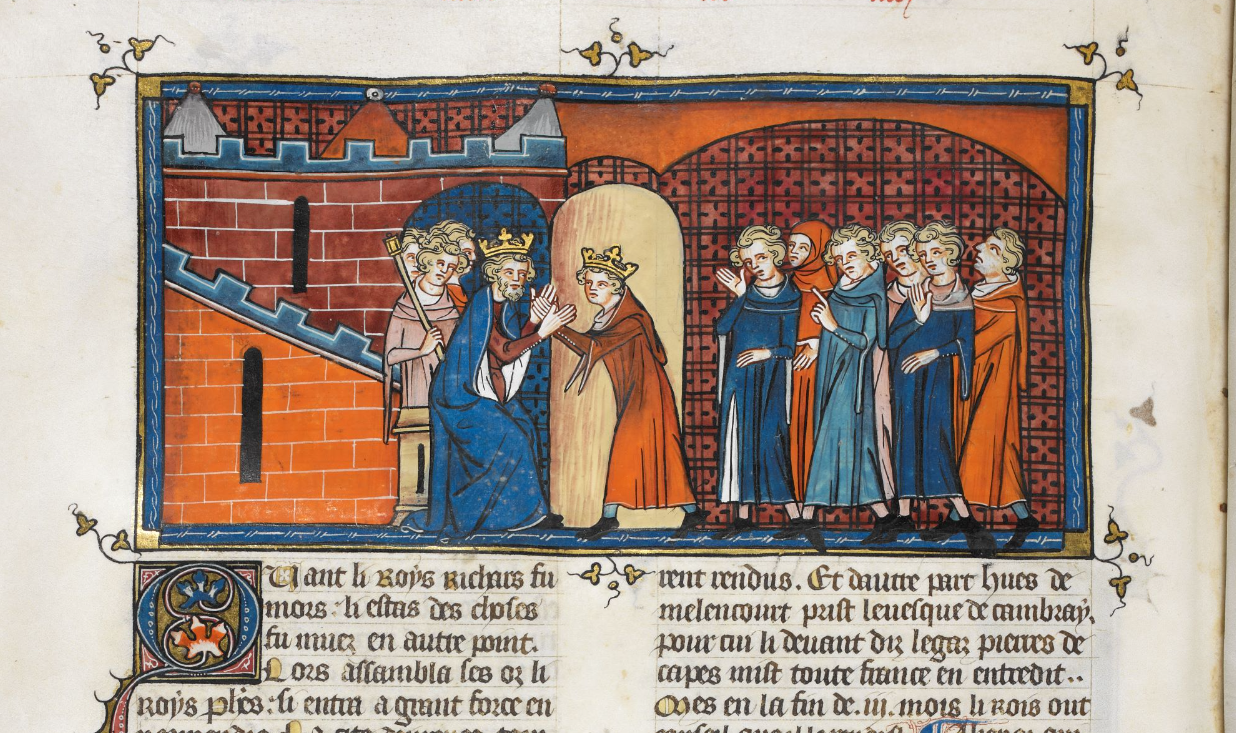 Quant li Roys Richars fu
mors : li estas des choses
fu muez en autre point.
Lors assambla ses oz li
Roys phes : si entra a grant force en
rent rendus. Et dautre part hues de
melencourt prist levesque de cambray.
pour cui li devant diz legaz pierres de
capes mist toute france en entredit..
Mes en la fin de .iii. mois li Rois out